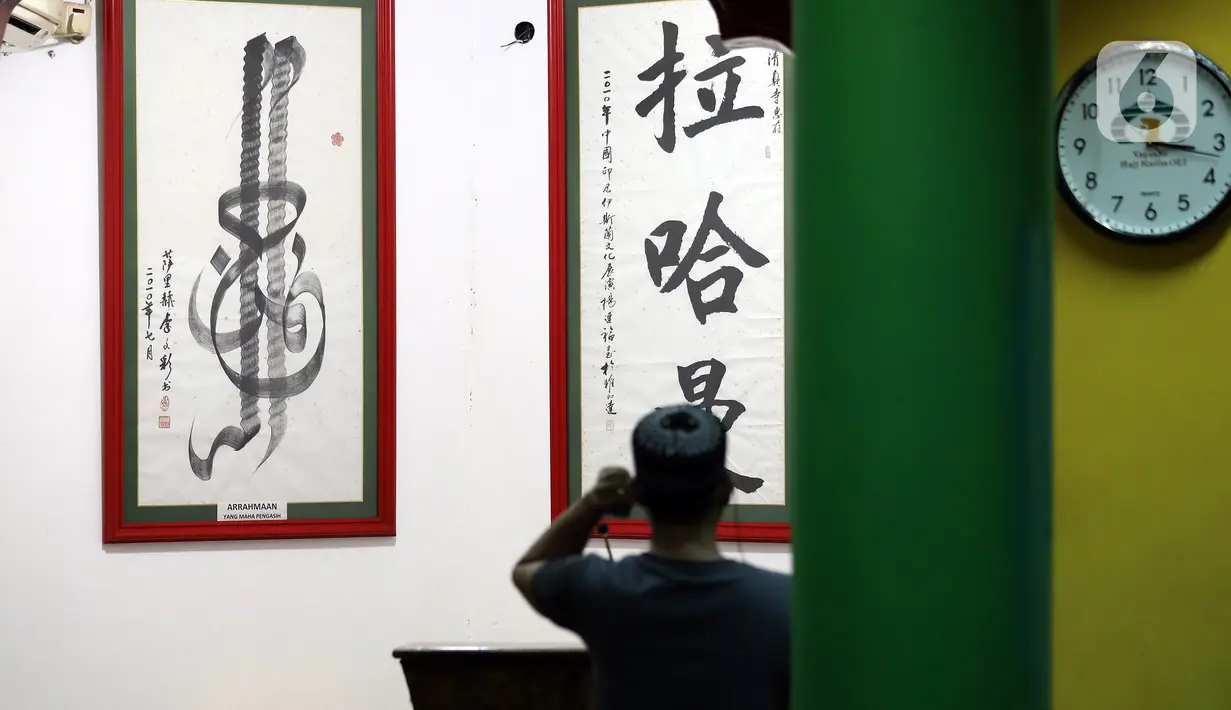 萨里赫李文彩书
二〇一〇年七月
ARRAHMAAN
YANG MAHA PENGASIH
清真寺惠存
拉
哈
二〇一〇年中國印尼伊斯蘭文化展演楊達福
12
11 1
10 2
9 3
8 4
7 6 5
Yayasan
Hajj Karim OEI
QUARTZ
6